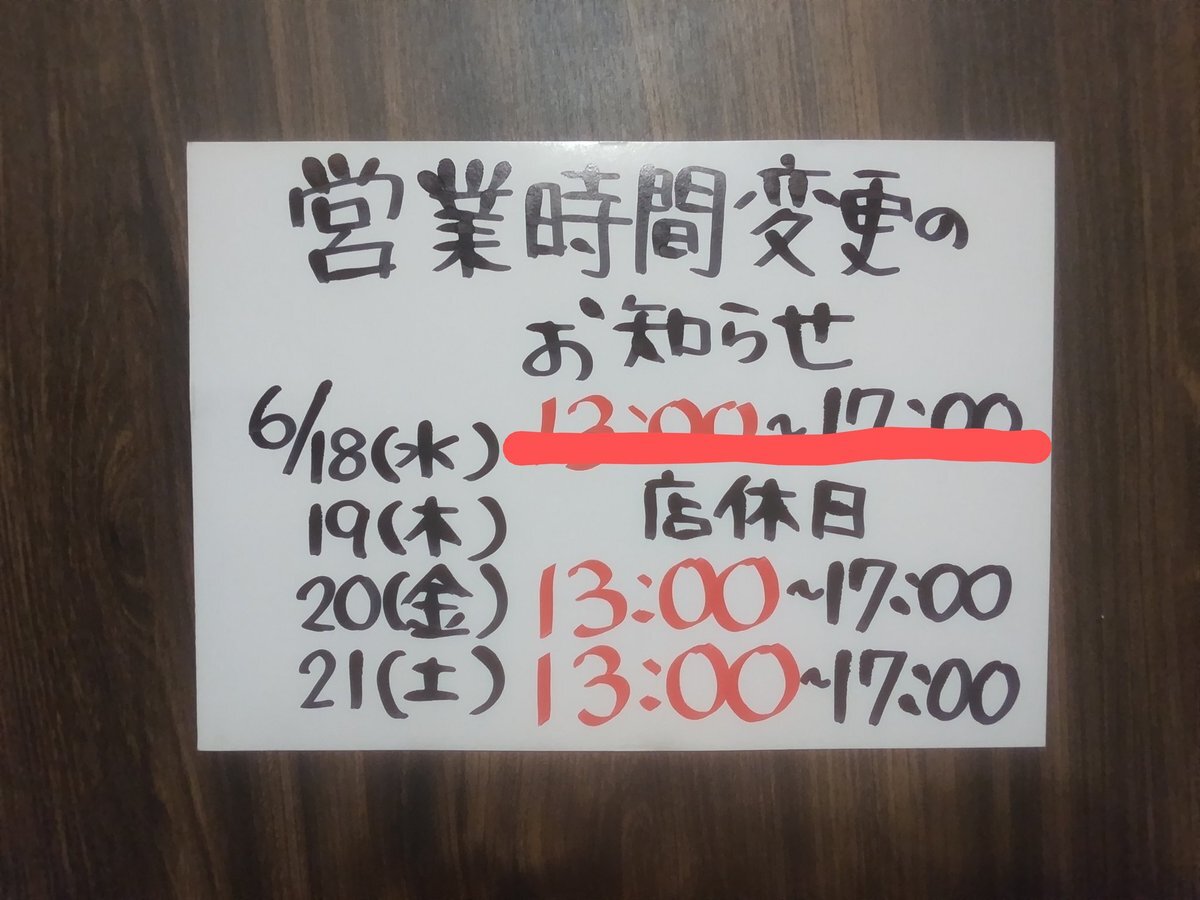 営業時間変更の
お知らせ
6/18(水) 13:00~17:00
19(木) 店休日
20(金) 13:00~17:00
21(土) 13:00~17:00